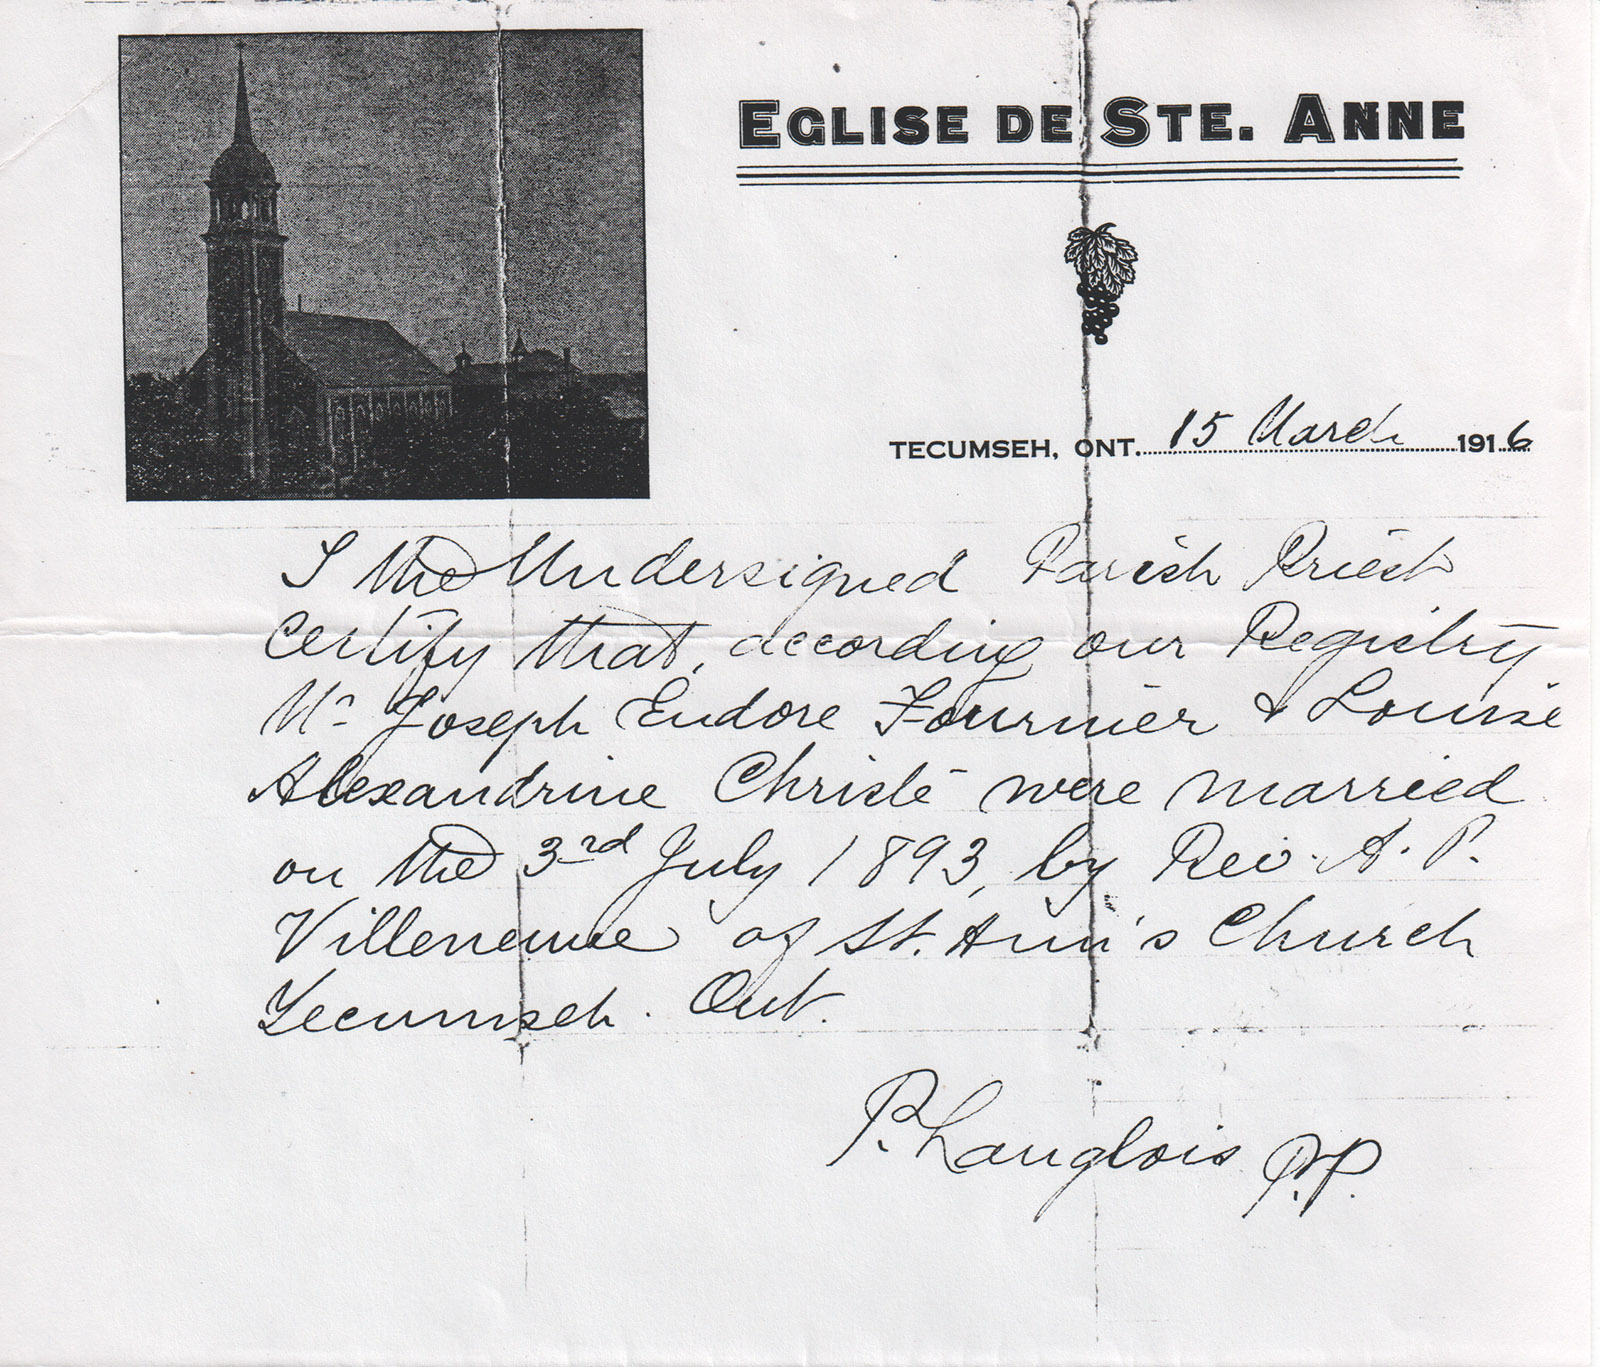 EGLISE DE STE. ANNE
TECUMSEH, ONT. 15 March 1916
I the Undersigned Parish Priest
Certify that, according our Registry
Mr Joseph Eudore Fournier & Louise
Alexandrine Christé were married
on the 3rd July 1893, by Rev. A. P.
Villeneuve of St. Ann's Church
Tecumseh. Ont.
P. Langlois P.P.